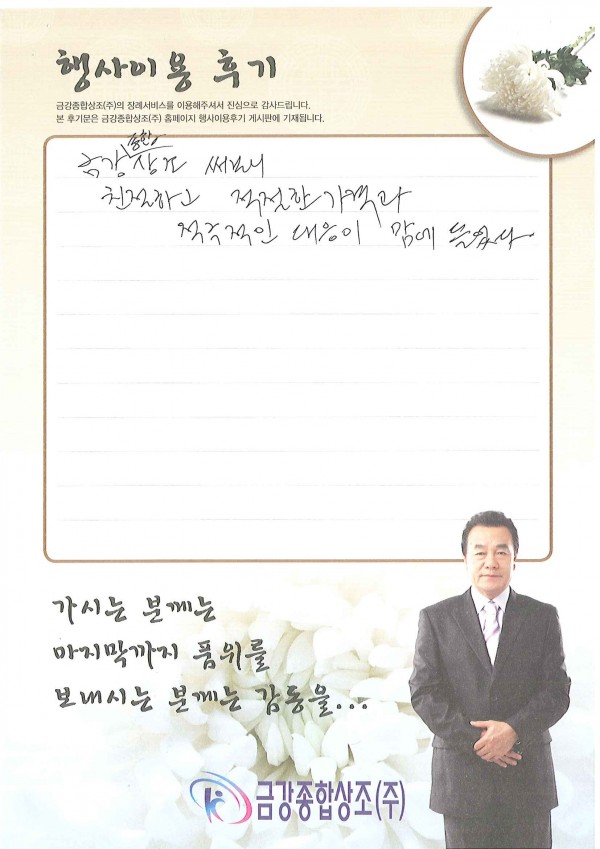 행사이용 후기
금강종합상조(주)의 장례서비스를 이용해주셔서 진심으로 감사드립니다.
본 후기분은 금강종합상조(주) 홈페이지 행사이용후기 게시판에 기재됩니다.
종합
금강 상조 써보니
친절하고 적절한 가격과
적극적인 대응이 맘에 들었다.
가시는 분께는
마지막까지 품위를
보내시는 분께는 감동을...
금강종합상조(주)